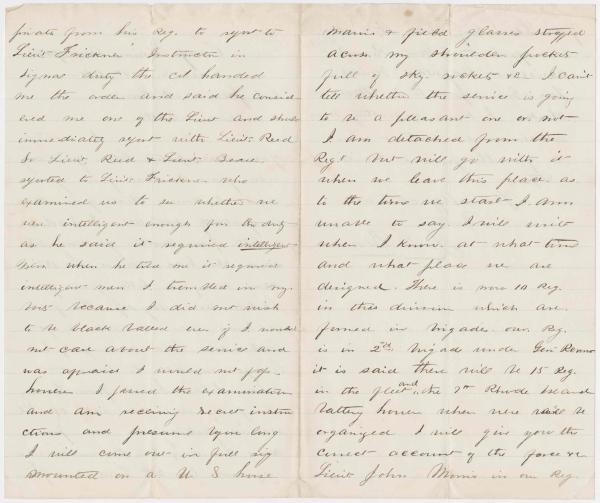 private from his Reg. to report to
Lieut Frickner Instructor in
signal duty the col handed
me the order and said he consid-
ered me one of the Lieut and should
immediately report with Lieut Reed
So Lieut, Reed & Lieut
reported to Lieut Frickner who
examined us to see whether we
were intelligent enough for the duty
as he said it required intelligent
men when he told me it required
intelligent men I trembled in my
boots because I did not wish
to be black balled even if I would
not care about the service and
was afraid I would not pass
however I passed the examination
and am receiving secret instru
ctions and presume before long
I will come out in full rig
mounted on a U S horse
& field glasses strapped
across my shoulder pockets
full of sky rockets &c I cant
tell whether the service is going
to be a pleasant one or not
I am detached from the
Regt but will go with it
when we leave this place as
to the time we start I am
unable to say. I will write
when I know at what time
and what place we are
designed. There is now 10 Reg.
in this division which are
formed in brigades our Reg.
is in 2nd brigade under Gen Renno
it is said there will be 15 Reg.
in the fleet and the 7th Rhode Island
battery however when we're
organized I will give you the
correct account of the force &c
Lieut John Morris in our Reg.